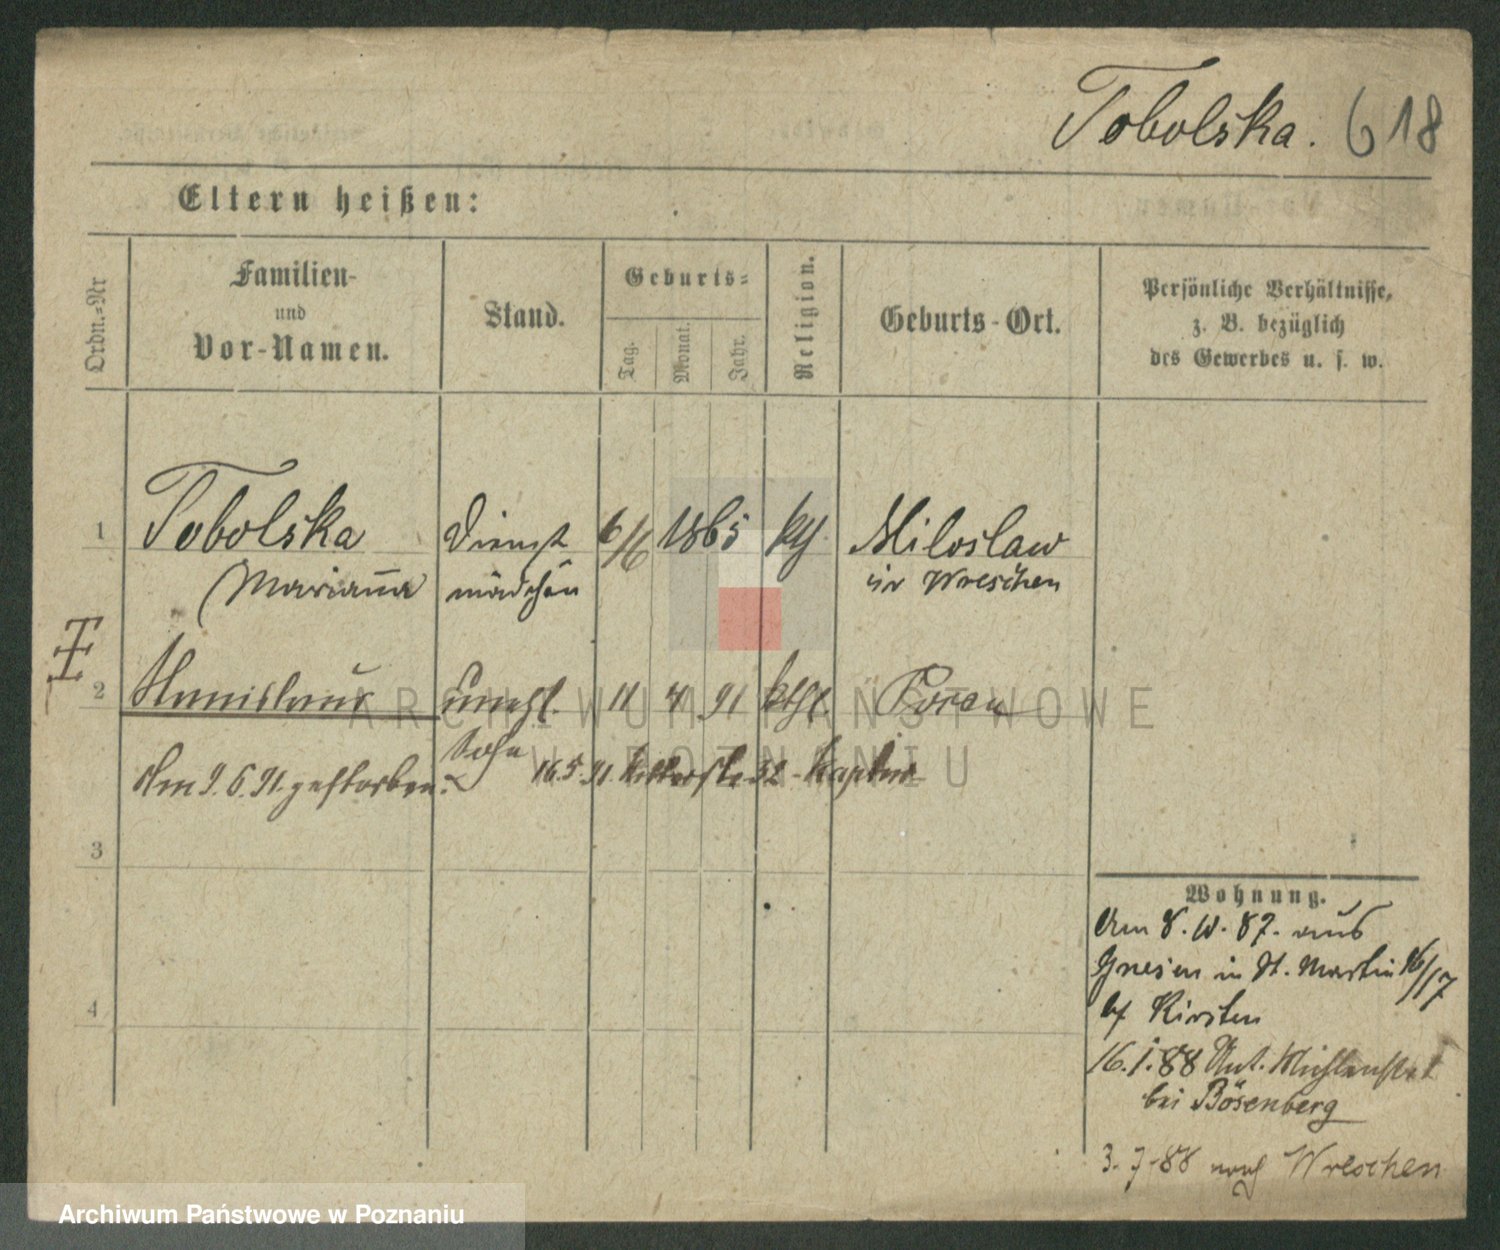 Tobolska. 618
Eltern heißen:
Ordn.-Nr
Familien-
und
Vor-Namen.
Stand.
Geburts-
Tag.
Monat.
Jahr.
Religion.
Geburts-Ort.
Persönliche Verhältnisse,
z. B. bezüglich
des Gewerbes u. s. w.
1 Tobolska Dienst 6/6 1865 kth Miloslaw
Marianna mädchen in Wreschen
2 Stanislaus unehl. 11 4 91 kthl. Posen
Sohn
Am 9.6.91. gestorben. 16.5.91. Ritterstr 32
3
4
Wohnung.
Am 8. 10. 87. aus
Gnesen in St. Martin 16/17
bei Kirsten
16.1.88 Unt. Mühlenstr 1
bei Bösenberg
3.7.88 nach Wreschen
ARCHIWUM PAŃSTWOWE
W POZNANIU
Archiwum Państwowe w Poznaniu